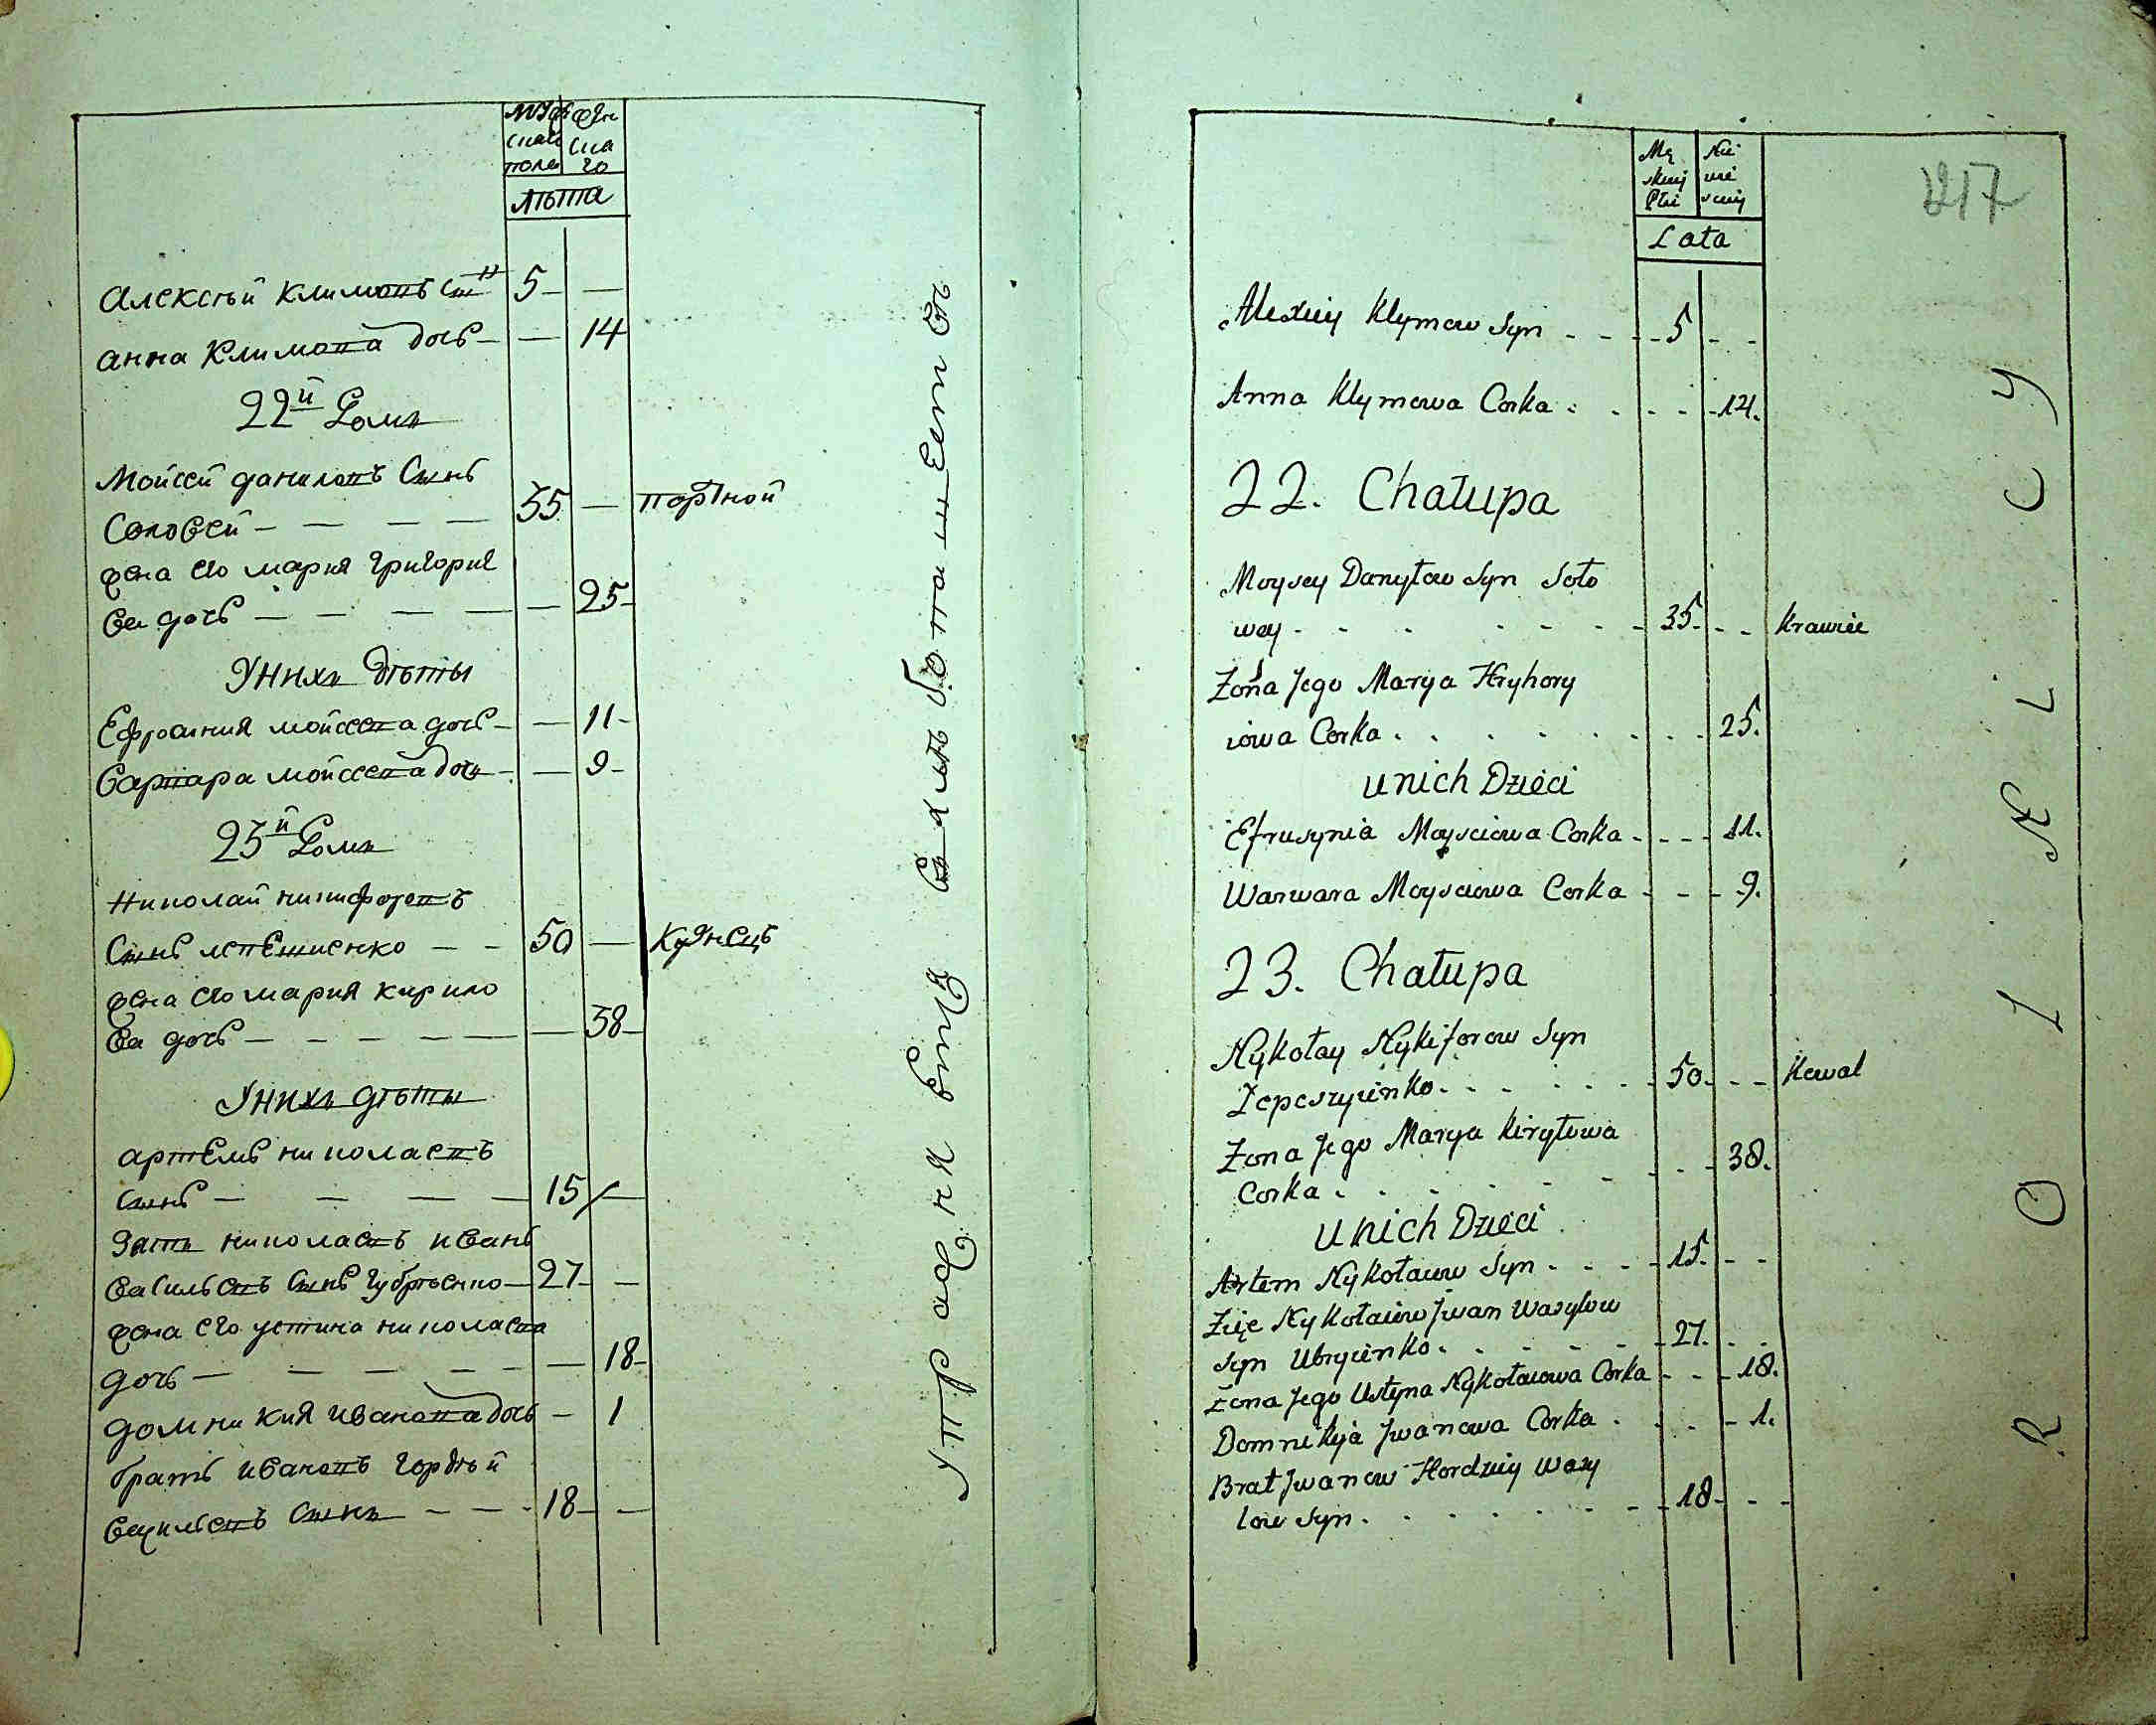 Мужскаго пола
Женскаго
Лѣта
Алексѣй Климовъ сынъ 5 — —
Анна Климова дочь — — 14
22й Домъ
Мойсей Даниловъ Сынъ
Соловей — — — — 35 — портной
жена его Мария Григорие
ва дочь — — — — — 25 —
У нихъ дѣты
Ефросиния Мойсеева дочь — — 11 —
Варвара Мойсеева дочь — — 9 —
23й Домъ
Николай Никифоровъ
Сынъ Лепешиенко — — 50 — Кузнецъ
жена его Мария Кирило
ва дочь — — — — — — 38 —
У нихъ дѣты
Артемъ Николаевъ
Сынъ — — — — 15 —
Зять Николаевъ Иванъ
Васильевъ Сынъ Губрѣенко — 27 — —
жена его Устина Николаева
дочь — — — — — — 18 —
Домникия Иванова дочь — 1
братъ Ивановъ Гордѣй
Васильевъ Сынъ — — — 18 — —
Упражняются въ хлѣбопашествѣ
Mę
skiej
Płci
Nie
wie
sciej
Lata
217
Alexiey Klymow Syn - - - - 5 - -
Anna Klymowa Corka . . - - - 14.
22. Chałupa
Moysey Danyłow Syn Soło
wey - - - - - - - - 35. - - Krawiec
Żona Jego Marya Hryhory
iowa Corka . . . . . . . . 25.
U nich Dzieci
Efrusynia Moysciowa Corka . - - - 11.
Warwara Moysciowa Corka - - - 9.
23. Chałupa
Nykołay Nykiforow Syn
Łepeszyienko . - - - - - - 50. - - Kowal
Żona Jego Marya Kiryłowa
Corka . . . . . . . - - 38.
U nich Dzieci
Artem Nykołaiow Syn . - - - 15. - -
Zięc Nykołaiow Jwan Wasylow
Syn Ubryienko . . . . . . - 27. - -
Żona Jego Ustyna Nykołaiowa Corka - - - 18.
Domnikija Jwanowa Corka . . - - 1.
Brat Jwanow Hordziey Wasy
low Syn . . . . . . . - 18 - - -
ROLNICY